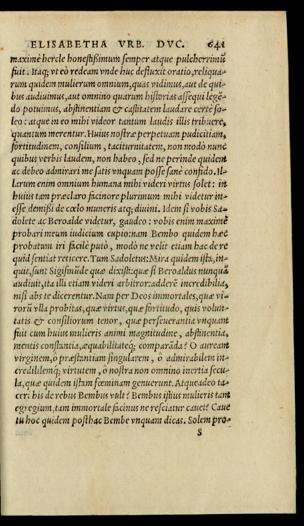 ELISABETHA VRB. DVC. 641
maximè hercle honestißimum semper atque pulcherrimũ
fuit. Itaq; vt eò redeam vnde huc defluxit oratio, reliqua-
rum quidem mulierum omnium, quas vidimus, aut de qui-
bus audiuimus, aut omnino quarum historias assequi legẽ-
do potuimus, abstinentiam & castitatem laudare certè so-
leo: atque in eo mihi videor tantum laudis illis tribuere,
quantum merentur. Huius nostræ perpetuam pudicitiam,
fortitudinem, consilium, taciturnitatem, non modò nunc
quibus verbis laudem, non habeo, sed ne perinde quidem
ac debeo admirari me satis vnquam posse sanè confido. Il-
larum enim omnium humana mihi videri virtus solet: in
huius tam præclaro facinore plurimum mihi videtur in-
esse demißi de cœlo muneris atq; diuini. Idem si vobis Sa-
dolete ac Beroalde videtur, gaudeo: vobis enim maximè
probari meum iudicium cupio: nam Bembo quidem hæc
probatum iri facilè puto, modò ne velit etiam hac de re
quid sentiat reticere. Tum Sadoletus: Mira quidem ista, in-
quit, sunt Sigismũde quæ dixisti: quæ si Beroaldus nunquã
audiuit, ita illi etiam videri arbitror: adderẽ incredibilia,
nisi abs te dicerentur. Nam per Deos immortales, quæ vi-
rorũ vlla probitas, quæ virtus, quæ fortitudo, quis volun-
tatis & consiliorum tenor, quæ perseuerantia vnquam
fuit cum huius mulieris animi magnitudine, abstinentia,
mentis constantia, æquabilitateq; comparãda? O auream
virginem, ô præstantiam singularem, ô admirabilem in-
credibilemq; virtutem, ô nostra non omnino inertia secu-
la, quæ quidem istam fœminam genuerunt. Atque adeo ta-
ceri his de rebus Bembus vult? Bembus istius mulieris tam
egregium, tam immortale facinus ne resciatur cauet? Caue
tu hoc quidem posthac Bembe vnquam dicas. Solem pro-
S